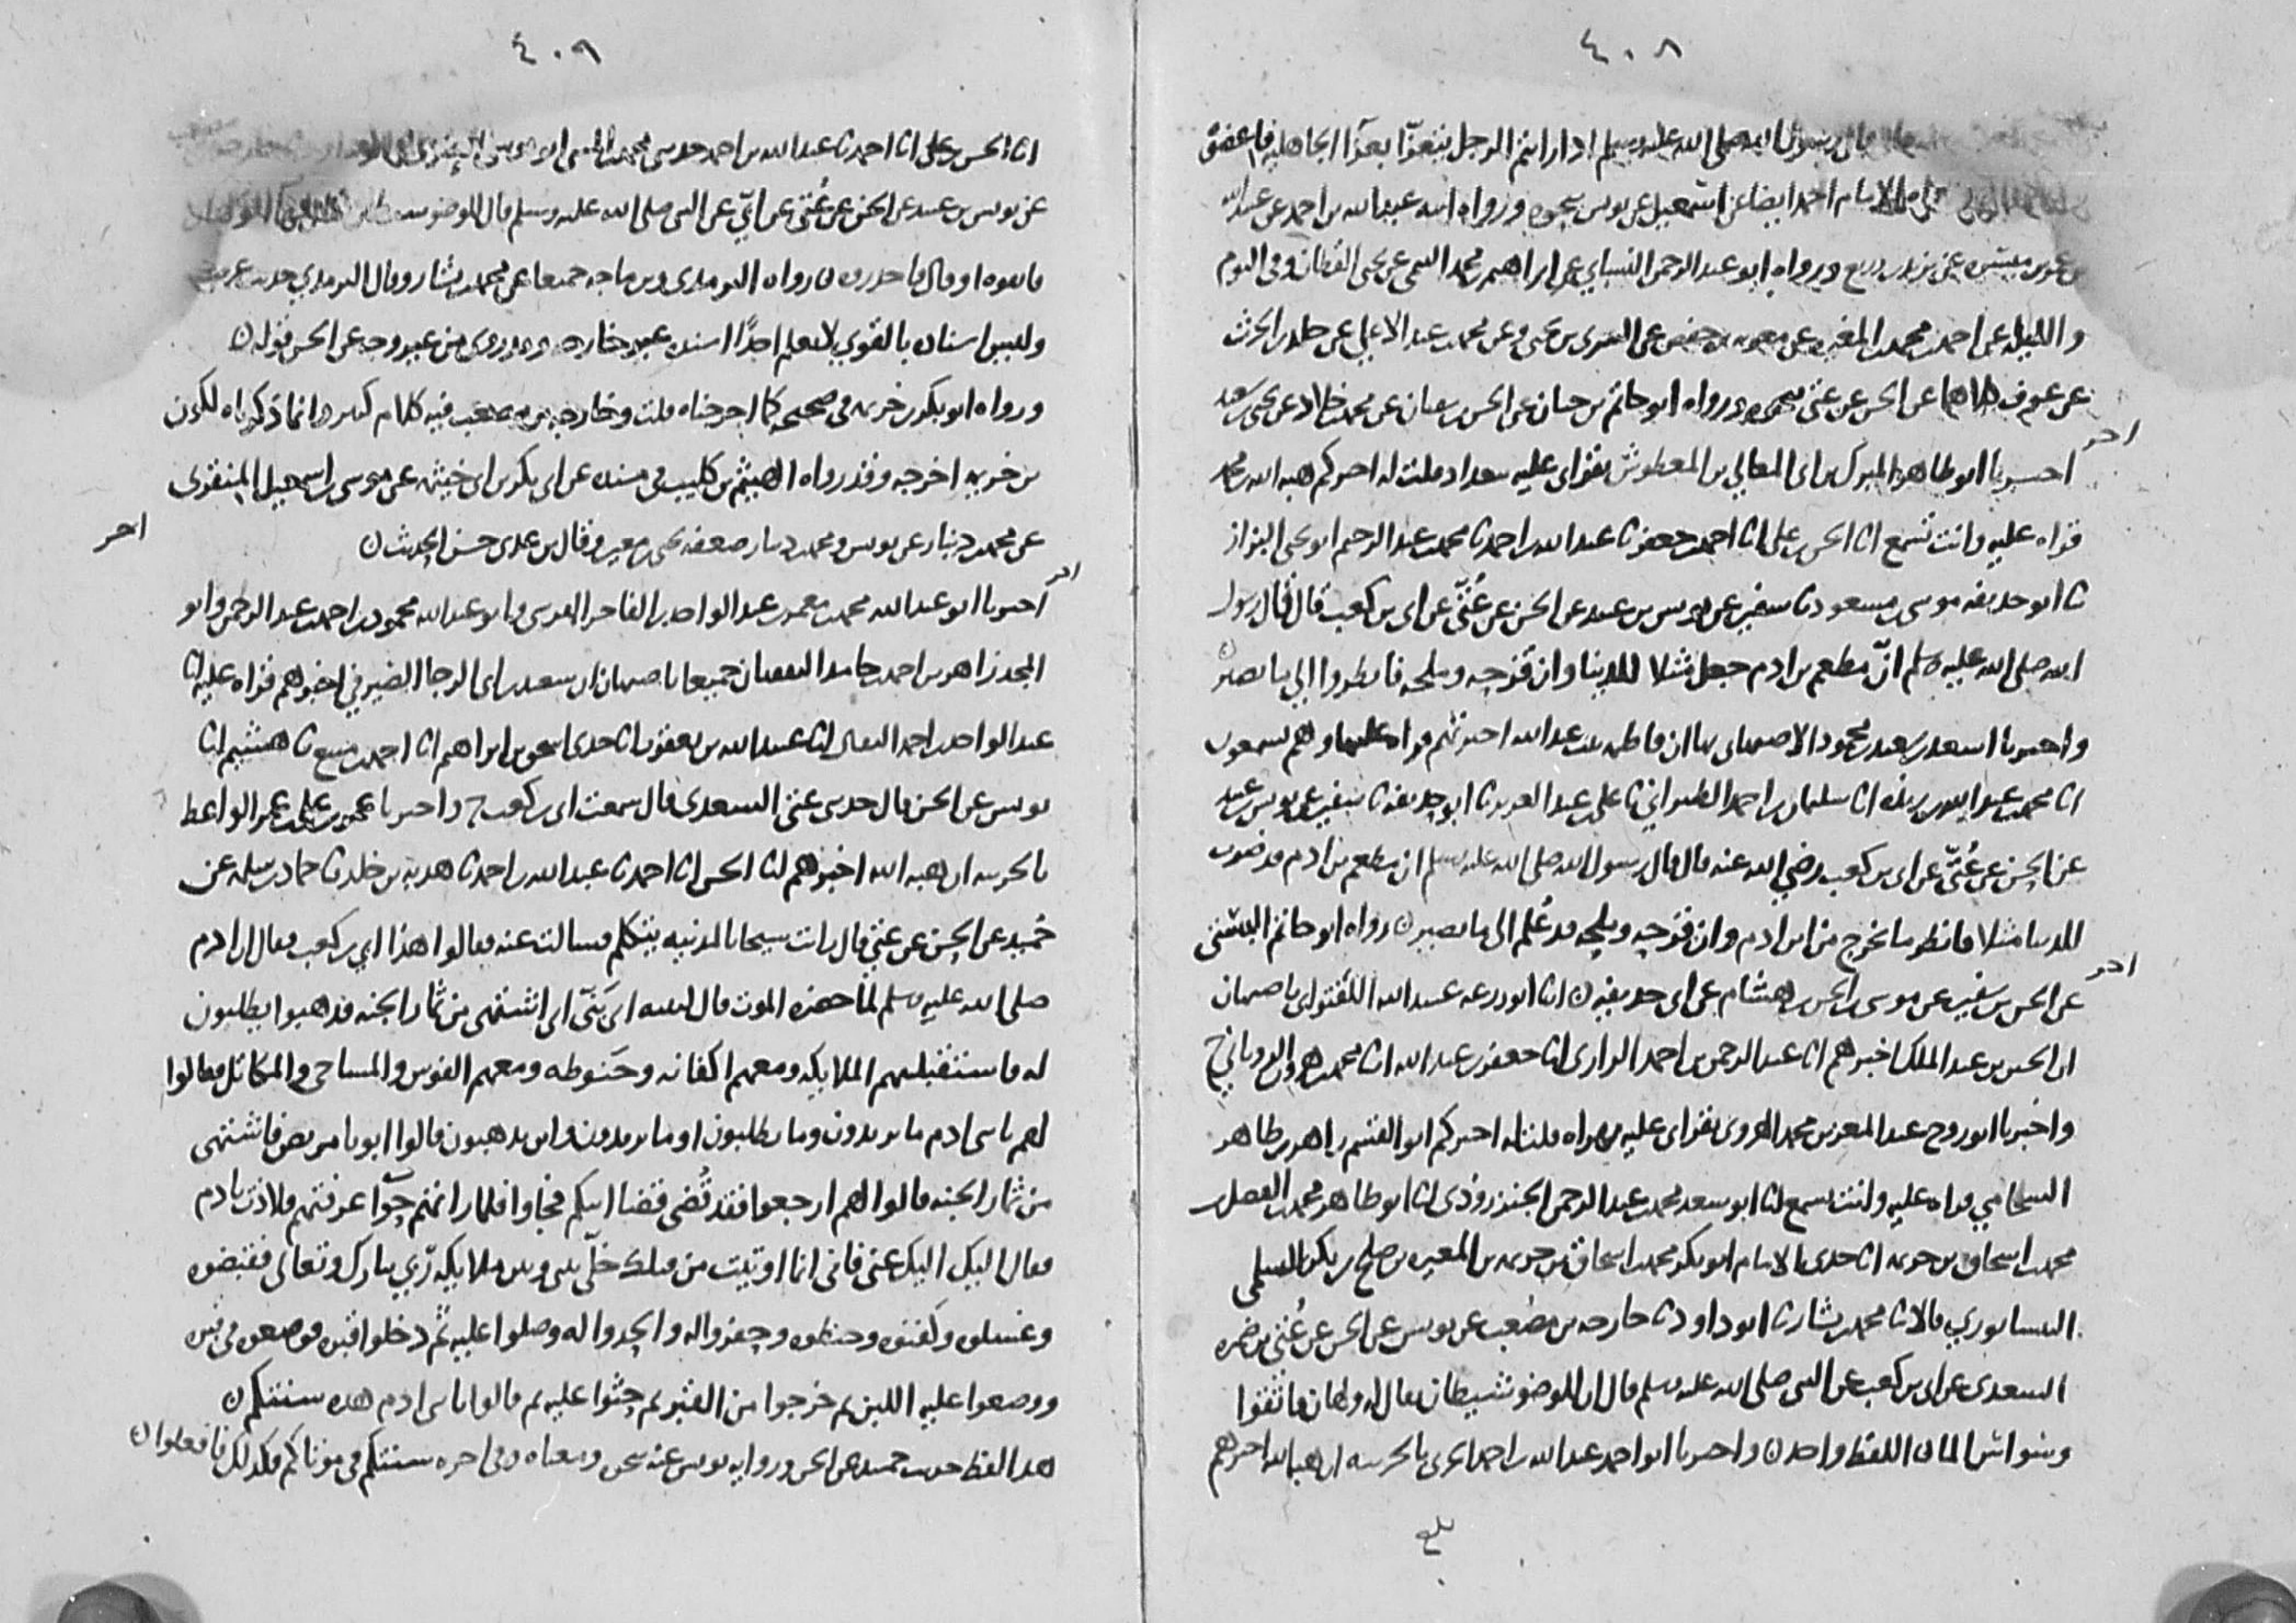 ٤٠٨
قال رسول الله صلى الله عليه وسلم اذا رايتم الرجل يتعزا بعزا الجاهلية فاعضوه
الامام احمد ايضا عن اسمعيل عن يونس بنحوه ورواه ابنه عبد الله بن احمد عن عبيد الله
عن يزيد بن زريع ورواه ابو عبد الرحمن النسائي عن ابراهيم بن محمد التيمي عن يحيى القطان وفي اليوم
والليلة عن احمد بن محمد بن المغيرة عن معويه بن حفص عن السري بن يحيى وعن محمد بن عبد الاعلى عن خلد بن الحرث
عن عوف كلاهما عن الحسن عن عتي بنحوه ورواه ابو حاتم بن حبان عن الحسن بن سفيان عن محمد بن خلاد عن يحيى بن سعيد
اخر
اخبرنا ابو طاهر المبرك بن ابي المعالي بن المعطوش بقراتي عليه ببغداد قلت له اخبركم هبة الله بن محمد
قراة عليه وانت تسمع انا الحسن بن علي انا احمد بن جعفر ثا عبد الله بن احمد ثا محمد بن عبد الرحيم ابو يحيى البزاز
ثا ابو حذيفه موسى بن مسعود ثا سفين عن يونس بن عبيد عن الحسن عن عُتيّ عن ابي بن كعب قال قال رسول
الله صلى الله عليه وسلم انّ مطعم بن ادم جعل مثلا للدنيا وان قزحه وملحه فانظروا الى ما يصير
واخبرنا اسعد بن سعيد بن محمود الاصبهاني بها ان فاطمه بنت عبد الله اخبرتهم قراة عليها وهم يسمعون
انا محمد بن عبد الله بن ريذه انا سليمان بن احمد الطبراني ثا علي بن عبد العزيز ثا ابو حذيفة ثا سفين عن يونس بن عبيد
عن الحسن عن عُتيّ عن ابي بن كعب رضي الله عنه قال قال رسول الله صلى الله عليه وسلم ان مطعم بن ادم قد ضرب
للدنيا مثلا فانظر ما يخرج من ابن ادم وان قزحه وملحه قد عُلم الى ما يصير ن رواه ابو حاتم البستي
اخر
عن الحسن بن سفين عن موسى بن الحسن بن هشام عن ابي حذيفه ن انا ابو زرعه عبيد الله اللفتواني باصبهان
ان الحسين بن عبد الملك اخبرهم انا عبد الرحمن بن احمد الرازي انا جعفر بن عبد الله انا محمد بن هرون الروياني ح
واخبرنا ابو روح عبد المعز بن محمد الهروي بقراتي عليه بهراه قلت له اخبركم ابو القسم زاهر بن طاهر
الشحامي قراه عليه وانت تسمع انا ابو سعد محمد بن عبد الرحمن الجنزروذي انا ابو طاهر محمد بن الفضل بن
محمد بن اسحاق بن خزيمه انا جدي الامام ابو بكر محمد بن اسحاق بن خزيمه بن المغيره بن صلح بن بكر السلمي
النيسابوري قالا ثا محمد بن بشار ثا ابو داود ثا خارجه بن مصعب عن يونس عن الحسن عن عُتي بن ضمره
السعدي عن ابي بن كعب عن النبي صلى الله عليه وسلم قال ان للوضو شيطان يقال له ولهان فاتقوا
وسواس الما ن اللفظ واحد ن واخبرنا ابو احمد عبد الله بن احمد الحربي بالحربيه ان هبة الله اخبرهم
بلغ
٤٠٩
انا الحسن بن علي انا احمد ثا عبد الله بن احمد حدثني محمد بن المثنى ابو موسى العنزي ثا ابو داود ثا خارجه
عن يونس بن عبيد عن الحسن عن عُتي عن ابيّ عن النبي صلى الله عليه وسلم قال للوضو شيطان
فاتقوه او قال فاحذروه ن رواه الترمذي وبن ماجه جميعا عن محمد بن بشار وقال الترمذي حديث غريب
وليس اسناده بالقوي لا نعلم احدًا اسنده غير خارجه وقد روي من غير وجه عن الحسن قوله ن
ورواه ابو بكر بن خزيمه في صحيحه كما اخرجناه قلت وخارجه بن مصعب فيه كلام كثير وانما ذكرناه لكون
بن خزيمه اخرجه وقد رواه الهيثم بن كليب في مسنده عن ابي بكر بن ابي خيثمه عن موسى بن اسمعيل المنقري
عن محمد بن دينار عن يونس ومحمد بن دينار ضعفه يحيى بن معين وقال بن عدي حسن الحديث ن
اخر
اخر
اخبرنا ابو عبد الله محمد بن معمر بن عبد الواحد بن الفاخر القرشي وابو عبد الله محمود بن احمد بن عبد الرحمن وابو
المجد زاهر بن احمد بن حامد الثقفيان جميعا باصبهان ان سعيد بن ابي الرجا الصيرفي اخبرهم قراه عليه انا
عبد الواحد بن احمد البقال انا عبيد الله بن يعقوب انا جدي اسحق بن ابراهيم انا احمد بن منيع ثا هشيم انا
يونس عن الحسن قال حدثني عتي السعدي قال سمعت ابي بن كعب ح واخبرنا عمر بن علي بن عمر الواعظ
بالحربيه ان هبة الله اخبرهم انا الحسن انا احمد ثا عبد الله بن احمد ثا هدبه بن خلد ثا حماد بن سلمه عن
حُميد عن الحسن عن عتي قال رايت شيخا بالمدينه يتكلم فسالت عنه فقالوا هذا ابي بن كعب فقال ان ادم
صلى الله عليه وسلم لما حضره الموت قال لبنيه اي بَنيّ اني اشتهي من ثمار الجنه فذهبوا يطلبون
له فاستقبلتهم الملايكه ومعهم اكفانه وحَنوطه ومعهم الفوس والمساحي والمكاتل فقالوا
لهم يا بني ادم ما تريدون وما تطلبون او ما تريدون واين تذهبون قالوا ابونا مريض فاشتهى
من ثمار الجنه قالوا لهم ارجعوا فقد قُضي قضا ابيكم فجاوا فلما راتهم حوّا عرفتهم فلاذت بادم
فقال اليك اليك عني فاني انما اوتيت من قبلك خلّي بيني وبين ملايكة ربّي تبارك وتعالى فقبضوه
وغسلوه وكفنوه وحنطوه وحفروا له والحدوا له وصلوا عليه ثم دخلوا قبره فوضعوه في قبره
ووضعوا عليه اللبن ثم خرجوا من القبر ثم حثوا عليه ثم قالوا يا بني ادم هذه سنتكم ن
هذا لفظ حديث حميد عن الحسن ورواية يونس عنه بنحوه ومعناه وفي اخره سنتكم في موتاكم فكذلك فافعلوا ن